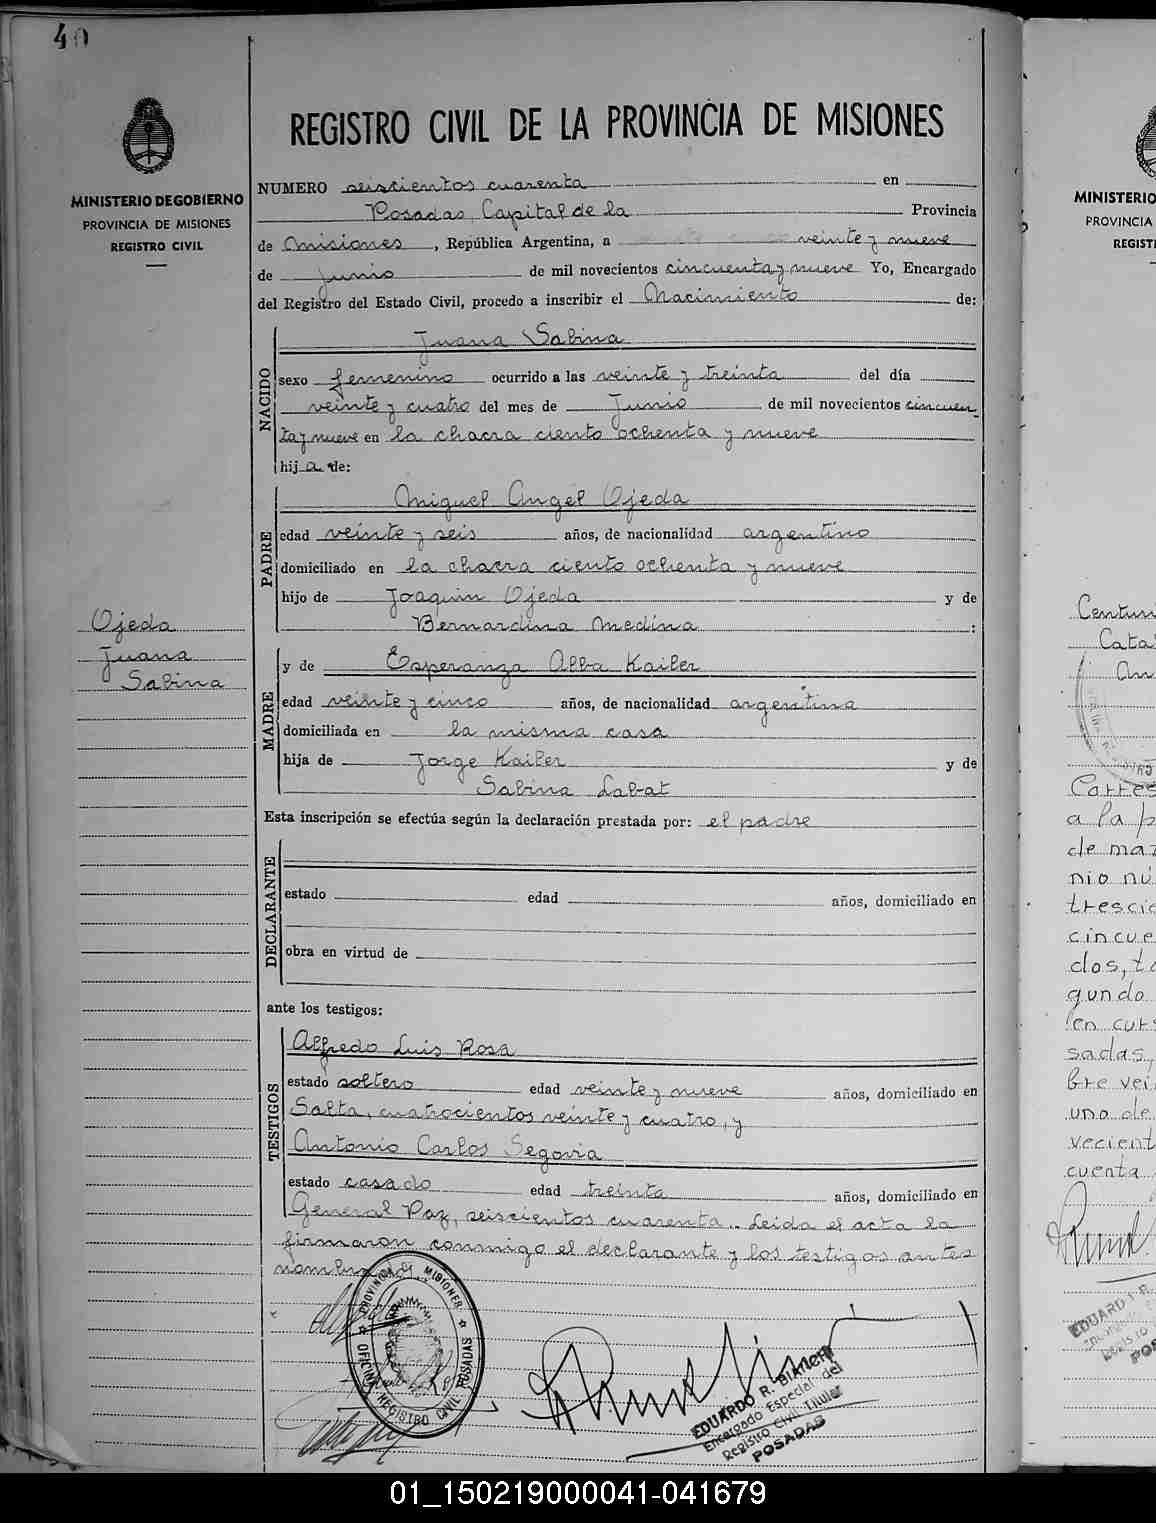 40
MINISTERIO DE GOBIERNO
PROVINCIA DE MISIONES
REGISTRO CIVIL
REGISTRO CIVIL DE LA PROVINCIA DE MISIONES
NUMERO seiscientos cuarenta en
Posadas, Capital de la Provincia
de Misiones, República Argentina, a veinte y nueve
de Junio de mil novecientos cincuenta y nueve Yo, Encargado
del Registro del Estado Civil, procedo a inscribir el Nacimiento de:
NACIDO
Juana Sabina
sexo femenino ocurrido a las veinte y treinta del día
veinte y cuatro del mes de Junio de mil novecientos cincuen
ta y nueve en la chacra ciento ochenta y nueve
hija de:
PADRE
Miguel Angel Ojeda
edad veinte y seis años, de nacionalidad argentino
domiciliado en la chacra ciento ochenta y nueve
hijo de Joaquin Ojeda y de
Bernardina Medina :
Ojeda
Juana
Sabina
MADRE
y de Esperanza Alba Kailer
edad veinte y cinco años, de nacionalidad argentina
domiciliada en la misma casa
hija de Jorge Kailer y de
Sabina Labat
Esta inscripción se efectúa según la declaración prestada por: el padre
DECLARANTE
estado edad años, domiciliado en
obra en virtud de
ante los testigos:
TESTIGOS
Alfredo Luis Rosa
estado soltero edad veinte y nueve años, domiciliado en
Salta, cuatrocientos veinte y cuatro, y
Antonio Carlos Segovia
estado casado edad treinta años, domiciliado en
General Paz, seiscientos cuarenta.. Leida el acta la
firmaron conmigo el declarante y los testigos antes
nombrados.
PROVINCIA DE MISIONES
OFICINA REGISTRO CIVIL POSADAS
EDUARDO R. BIANCHI
Encargado Especial del
Registro Civil Titular
POSADAS
MINISTERIO
PROVINCIA
REGIST
Centuri
Cata
An
Corres
a la p
de mar
nio nú
trescie
cincue
dos, to
gundo
en curs
sadas,
bre vei
uno de
vecient
cuenta
EDUARDO R.
Registro
POS
01_150219000041-041679